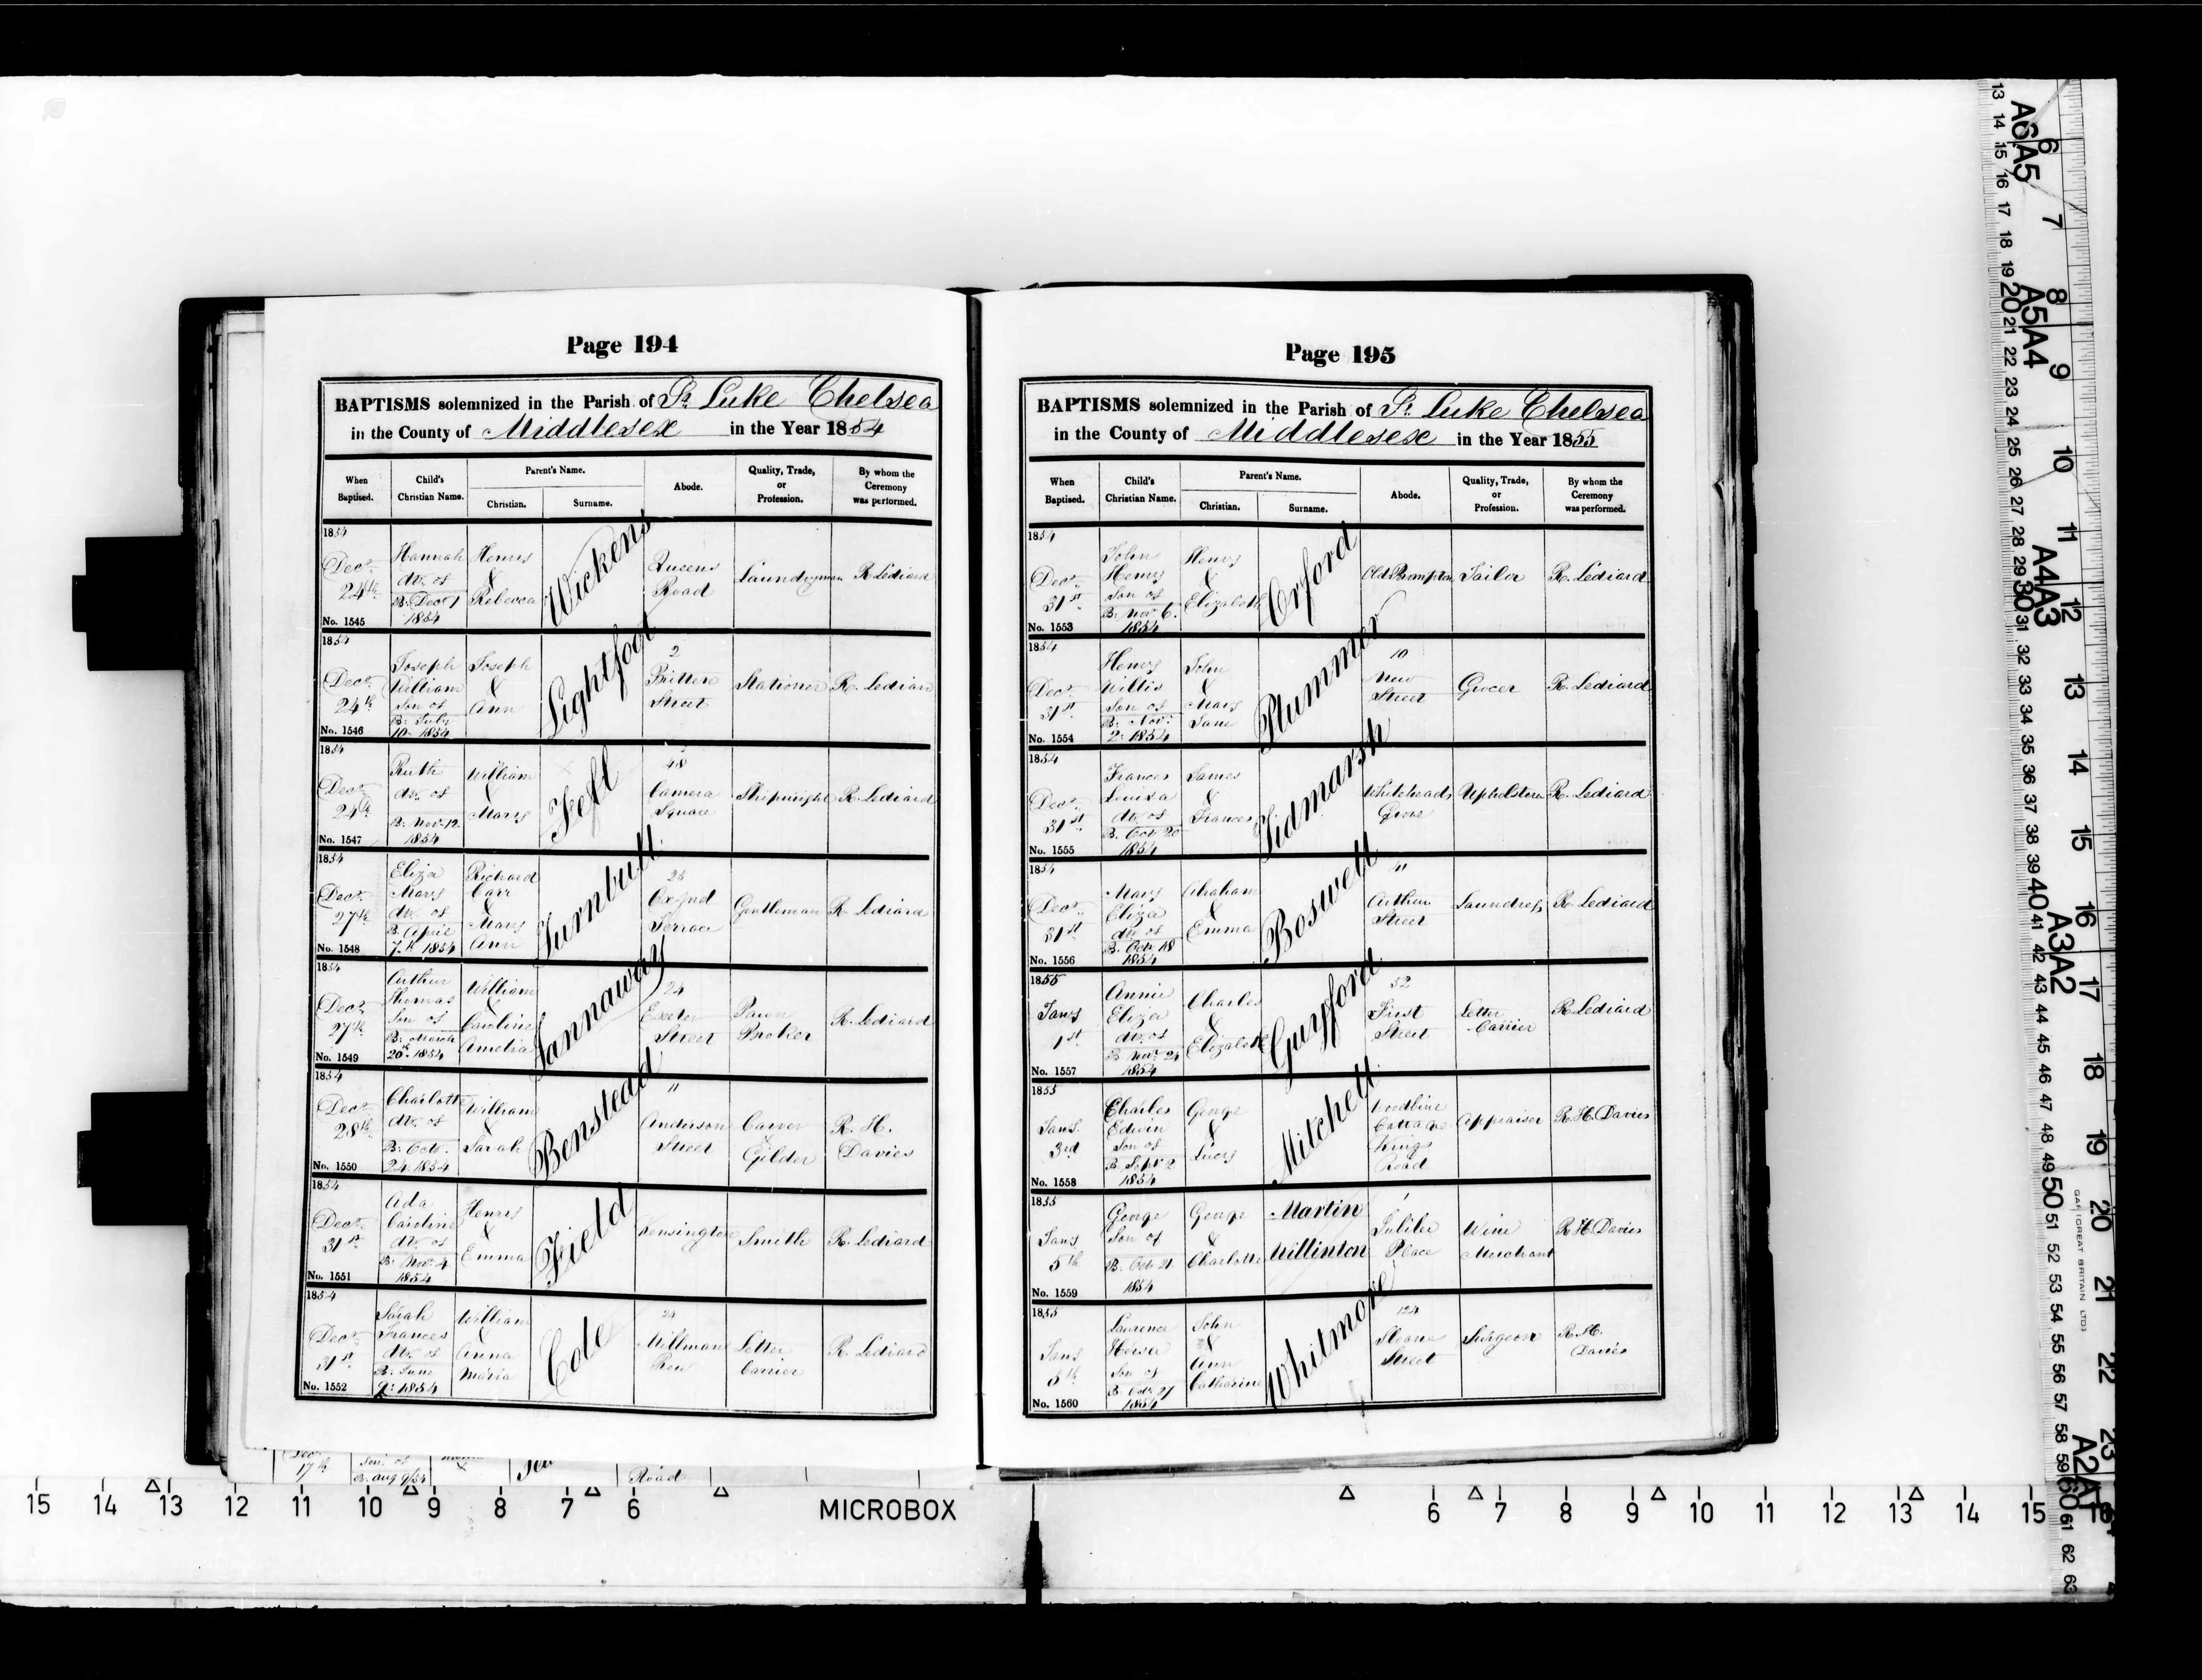 Page 194
BAPTISMS solemnized in the Parish of St. Luke Chelsea
in the County of Middlesex in the Year 1854
When Baptised.
Child's Christian Name.
Parent's Name.
Christian.
Surname.
Abode.
Quality, Trade, or Profession.
By whom the Ceremony was performed.
1854
Decr. 24th
No. 1545
Hannah
dtr. of
B. Decr 1
1854
Henry
&
Rebecca
Wickens
Queens
Road
Laundryman
R. Lediard
1854
Decr. 24th
No. 1546
Joseph
William
Son of
B. July
10 1854
Joseph
&
Ann
Lightfoot
2
Britten
Street
Stationer
R. Lediard
1854
Decr. 24th
No. 1547
Ruth
dtr. of
B. Novr. 12
1854
William
&
Mary
48
Camera
Square
Shipwright
R. Lediard
1854
Decr. 27th
No. 1548
Eliza
Mary
dtr. of
B. April
7th 1854
Richard
Carr
&
Mary
Ann
Turnbull
Terrace
Gentleman
R. Lediard
1854
Decr. 27th
No. 1549
Arthur
Thomas
Son of
B. March
20th 1854
William
&
Caroline
Amelia
Jannaway
24
Exeter
Street
Pawn
Broker
R. Lediard
1854
Decr. 28th
No. 1550
Charlotte
dtr. of
B. Octr.
24 1854
William
&
Sarah
Benstead
11
Anderson
Street
Carver
&
Gilder
R. H.
Davies
1854
Decr. 31st
No. 1551
Ada
Caroline
dtr. of
B. Novr. 4
1854
Henry
&
Emma
Field
Kensington
Smith
R. Lediard
1854
Decr. 31st
No. 1552
Sarah
Frances
dtr. of
B. June
9: 1854
William
&
Anna
Maria
Cole
Millman
Row
Letter
Carrier
R. Lediard
Page 195
BAPTISMS solemnized in the Parish of St. Luke Chelsea
in the County of Middlesex in the Year 1855
When Baptised.
Child's Christian Name.
Parent's Name.
Christian.
Surname.
Abode.
Quality, Trade, or Profession.
By whom the Ceremony was performed.
1854
Decr. 31st
No. 1553
John
Henry
Son of
B. Novr 6.
1854
Henry
&
Elizabeth
Orford
Old Brompton
Tailor
R. Lediard
1854
Decr. 31st
No. 1554
Henry
Willis
Son of
B. Novr.
2. 1854
John
&
Mary
Jane
Plummer
10
New
Street
Grocer
R. Lediard
1854
Decr. 31st
No. 1555
Frances
Louisa
dtr. of
B. Octr 20
1854
James
&
Frances
Tidmarsh
Whiteheads
Grove
Upholsterer
R. Lediard
1854
Decr. 31st
No. 1556
Mary
Eliza
dtr. of
B. Octr. 18
1854
Abraham
&
Emma
Boswell
11
Arthur
Street
Laundress
R. Lediard
1855
Jany 1st
No. 1557
Annie
Eliza
dtr. of
B. Novr. 24
1854
Charles
&
Elizabeth
Guyfford
52
First
Street
Letter
Carrier
R. Lediard
1855
Jany. 3rd
No. 1558
Charles
Edwin
Son of
B. Septr 2
1854
George
&
Lucy
Mitchell
Woodbine
Cottage
Kings
Road
Appraiser
R. H. Davies
1855
Jany 5th
No. 1559
George
Son of
B. Octr 21
1854
George
&
Charlotte
Martin
Millinton
Jubilee
Place
Wine
Merchant
R. H. Davies
1855
Jany 5th
No. 1560
Laurence
Son of
B. Octr. 21
1854
John
&
Ann
Catharine
Whitmore
124
Sloane
Street
Surgeon
R. H.
Davies
17th
Son of
B. Aug 9/54
Road
15 14 13 12 11 10 9 8 7 6 MICROBOX 6 7 8 9 10 11 12 13 14 15
A6 A5
A5 A4
A4 A3
A3 A2
6 7 8 9 10 11 12 13 14 15 16 17 18 19 20 21 22 23
13 14 15 16 17 18 19 20 21 22 23 24 25 26 27 28 29 30 31 32 33 34 35 36 37 38 39 40 41 42 43 44 45 46 47 48 49 50 51 52 53 54 55 56 57 58 59 60 61 62 63
GAF (GREAT BRITAIN LTD)